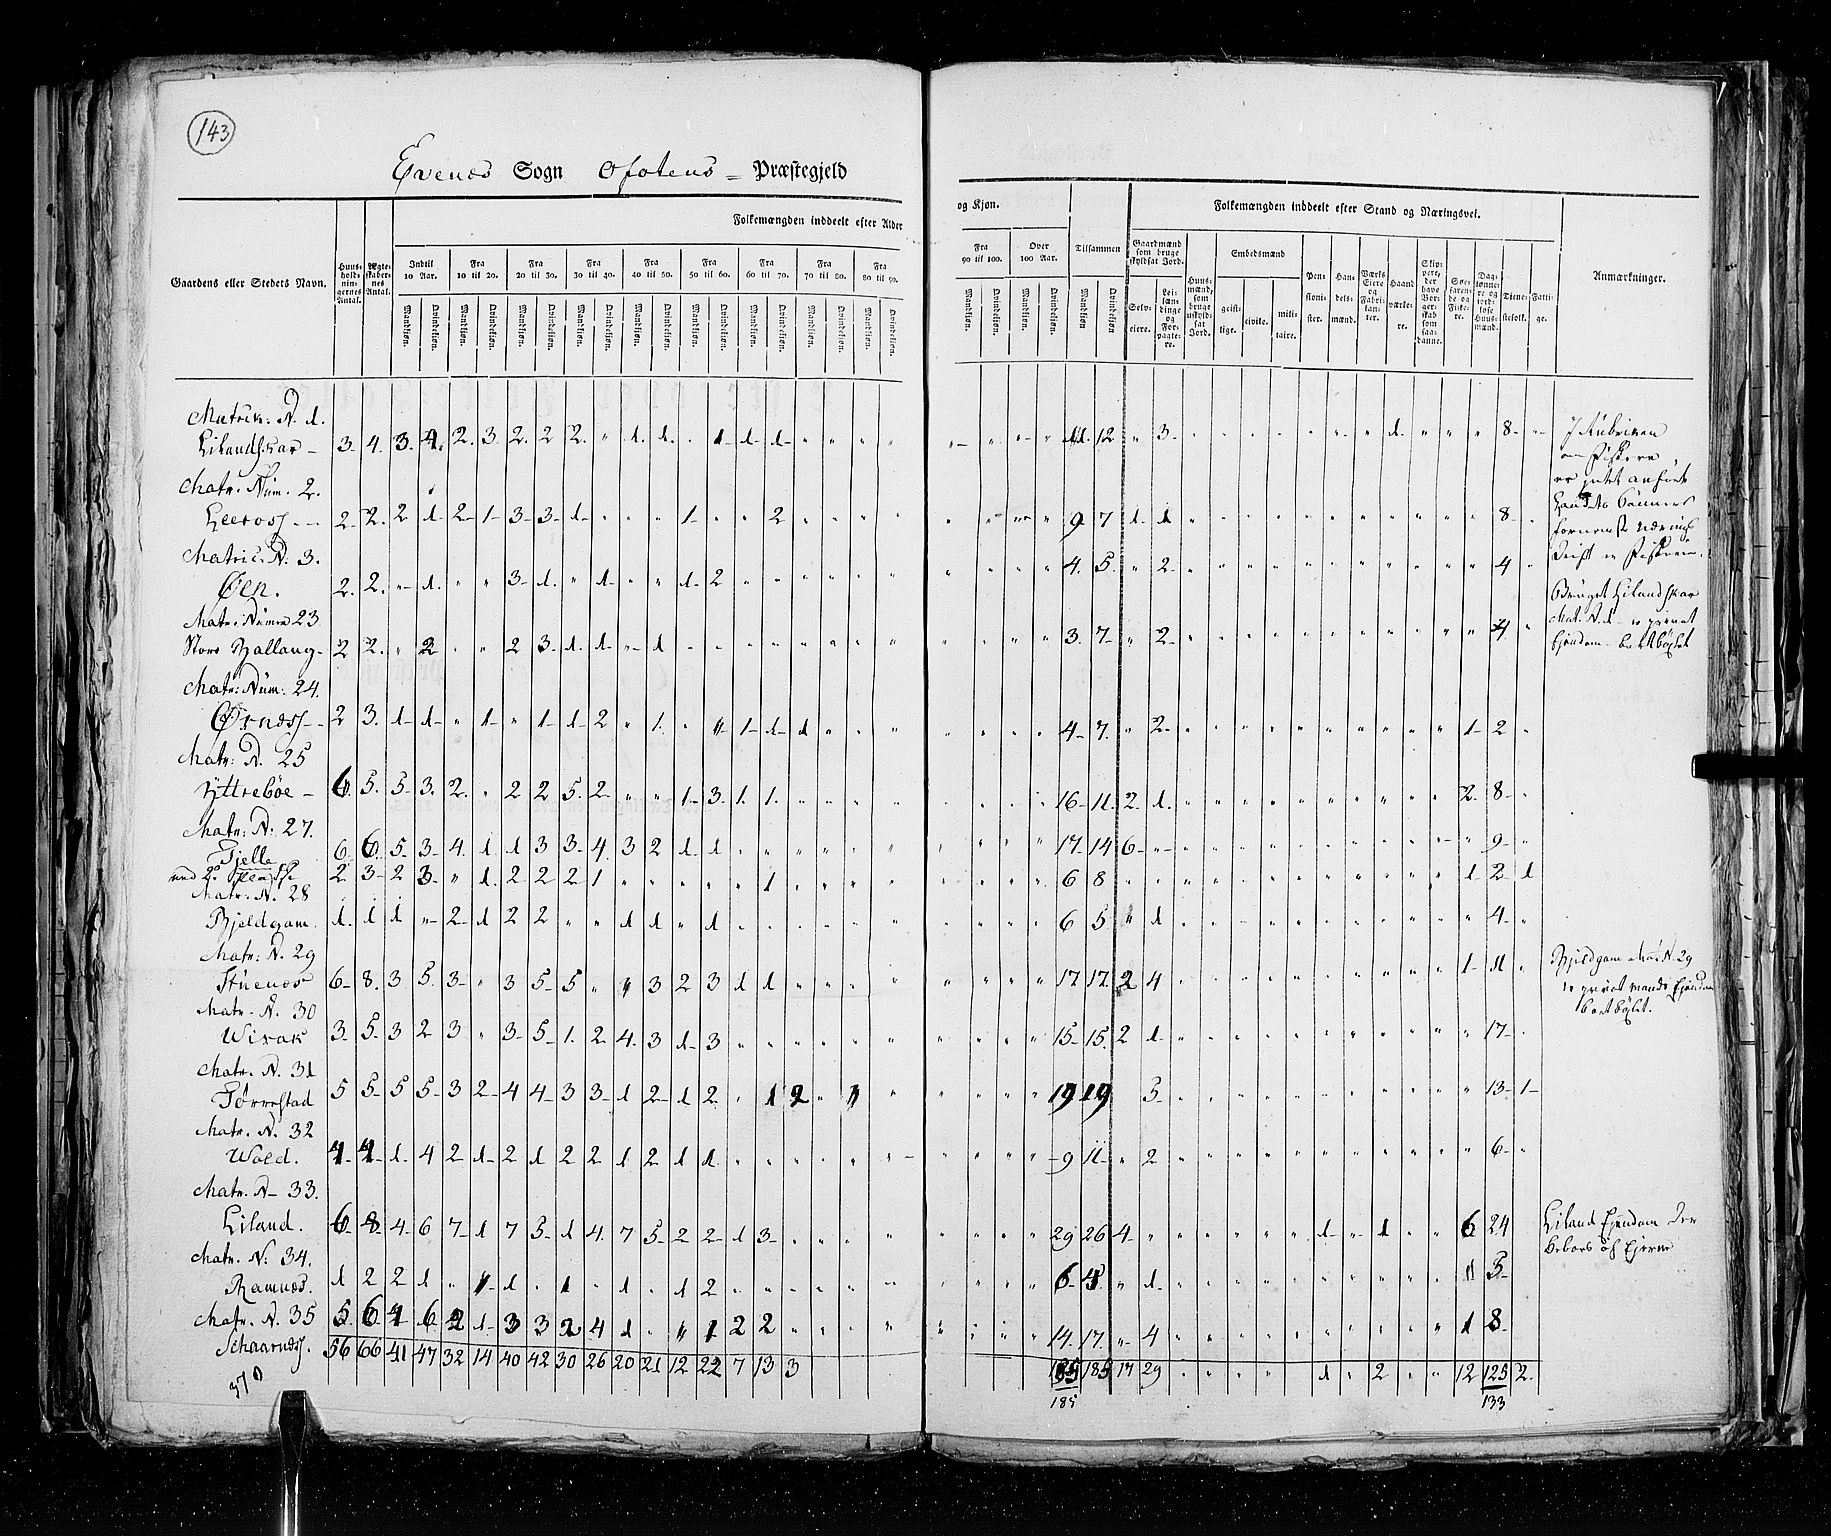 143
Evenes Sogn Ofotens - Præstegjeld
Folkemængden inddeelt efter Alder
og Kjøn.
Folkemængden inddeelt efter Stand og Næringsvei.
Gaardens eller Stedets Navn.
Huus-holdningernes Antal.
Ægteskabernes Antal.
Indtil 10 Aar.
Fra 10 til 20.
Fra 20 til 30.
Fra 30 til 40.
Fra 40 til 50.
Fra 50 til 60.
Fra 60 til 70.
Fra 70 til 80.
Fra 80 til 90.
Fra 90 til 100.
Over 100 Aar.
Tilsammen
Mandkjøn. Qvindekjøn.
Gaardmænd som bruge skyldsat Jord.
Selveiere.
Leilændinge og Forpagtere.
Huusmænd, som bruge uskyldsat Jord.
Embedsmænd
geistlige.
civile.
militaire.
Pensionister.
Handelsmænd.
Værks Eiere og Fabrikanter.
Haandværkere.
Skippere, der have Borgerskab som saadanne.
Søefarende og Fiskere.
Dagslønnere og jordløse Huusmænd.
Tjenestefolk.
Fattige.
Anmærkninger.
Matrik: N. 1.
Lilandskar - 3 4 3 4 2 3 2 2 2 " 1 1 " 1 1 1 11 12 " 3 1 8
Matr. Num. 2.
2 2 2 1 2 1 3 3 1 " " " 1 " " 2 9 7 1 1 8
Matric. N. 3.
Øen. 2 2 " 1 " " 3 1 " 1 " " 1 2 4 5 " 2 4
Matr. Numr 23
Store Ballang - 2 2 " 2 " " 2 3 1 1 " 1 3 7 " 2 4
Matr: Num: 24.
Ørnæss - 2 3 1 1 " 1 " 1 1 2 " 1 " " 1 1 1 4 7 " 2 1 2
Matr: N. 25
Yttrebøe - 6 5 5 3 2 " 2 2 5 2 " " 1 3 1 1 16 11 2 1 2 8
Matr: N. 27.
Tjelle 6 6 5 3 4 1 1 3 3 4 3 2 1 1 17 14 6 9
2 3 2 3 " 1 2 2 2 1 1 6 8 1 2 1
Matr. N. 28
Bjeldgam 1 1 1 " 2 1 2 2 " " 1 1 " 1 6 5 " 1 4
Matr: N. 29
Stuenes 6 8 3 5 3 " 3 5 5 " " 3 2 3 1 1 17 17 2 4 1 11
Matr. N. 30
Wirak 3 5 3 2 3 " 3 5 1 2 4 3 1 3 15 15 2 1 17
Matr. N. 31
Tørrestad 5 5 5 5 3 2 4 4 3 3 1 2 1 2 " 1 2 19 19 5 13 1
Matr. N. 32
Wold. 4 4 1 4 2 1 2 1 2 2 1 2 1 1 9 11 " 2 6
Matr. N. 33.
Liland. 6 8 4 6 7 1 7 5 1 4 7 5 2 2 1 3 29 26 4 1 1 6 24
Matr. N. 34.
Ramnes. 1 2 2 1
Matr. N. 35
Schaarness. 5 6 4 6 2 1 3 3 2 4 1 " " 1 2 2 14 17 " 4 1 8
56 66 41 47 32 14 40 42 30 26 20 21 12 22 7 13 3 185 185 17 29 1 2 12 125 2
185
133
370
I Rubriken
om Fiskere
er intet anført
fornemst Nærings
Drift er Fiskerie.
Bruget Lilandskar
Mat. N. 1 er privat
Ejendom bortbøxlet
Bjeldgam Mat N. 29
er privat mands Ejendom
bortbøxlet.
Liland Ejendom der
beboes af Ejerne